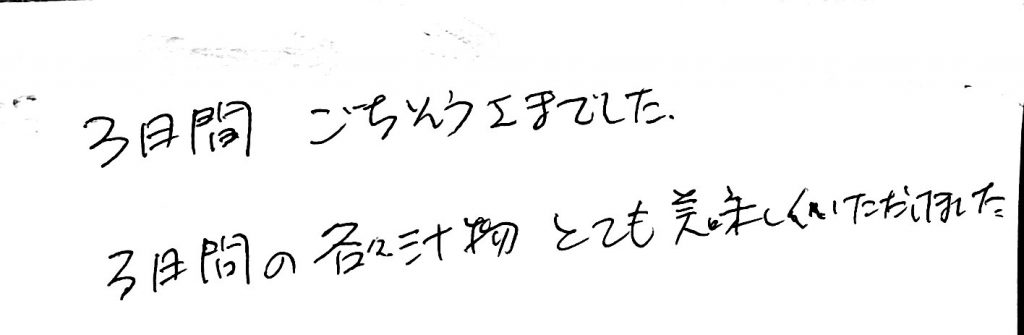 3日間 ごちそうさまでした.
3日間の各々汁物 とても美味しくいただきました